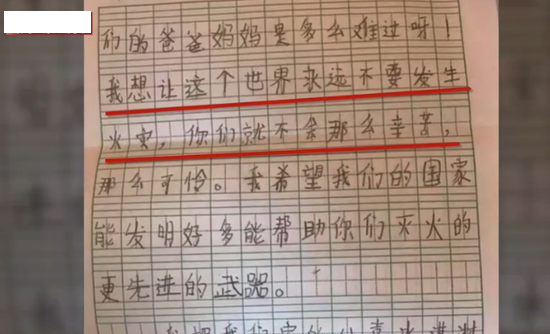 们的爸爸妈妈是多么难过呀！
我想让这个世界永远不要发生
火灾，你们就不会那么辛苦，
那么可怜。我希望我们的国家
能发明好多能帮助你们灭火的
更先进的武器。